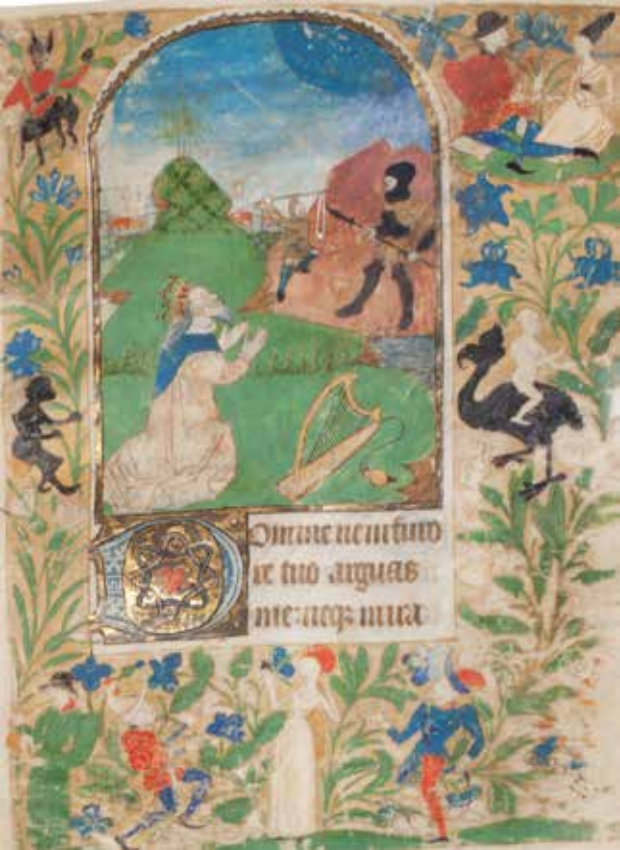 Domine ne in furo
re tuo arguas
me: neq; in ira